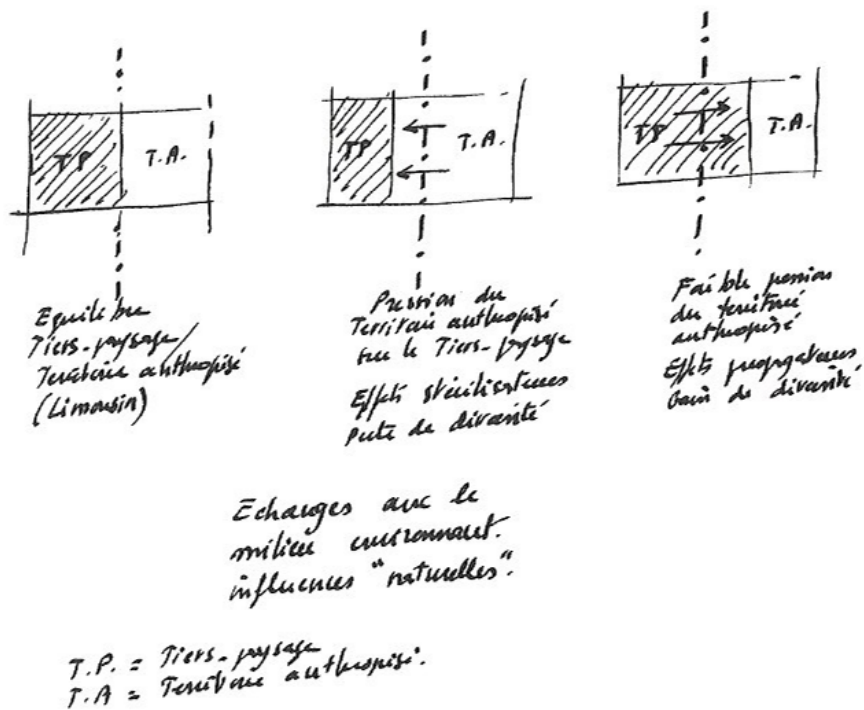 TP
T.A.
TP
T.A.
TP
T.A.
Equilibre
Tiers-paysage/
Territoire anthropisé
(Limousin)
Pression du
Territoire anthropisé
sur le Tiers-paysage
Effets stérilisateurs
Perte de diversité
Faible pression
du territoire
anthropisé
Effets propagateurs
Gain de diversité
Echanges avec le
milieu environnant.
influences "naturelles".
T.P. = Tiers-paysage
T.A = Territoire anthropisé.